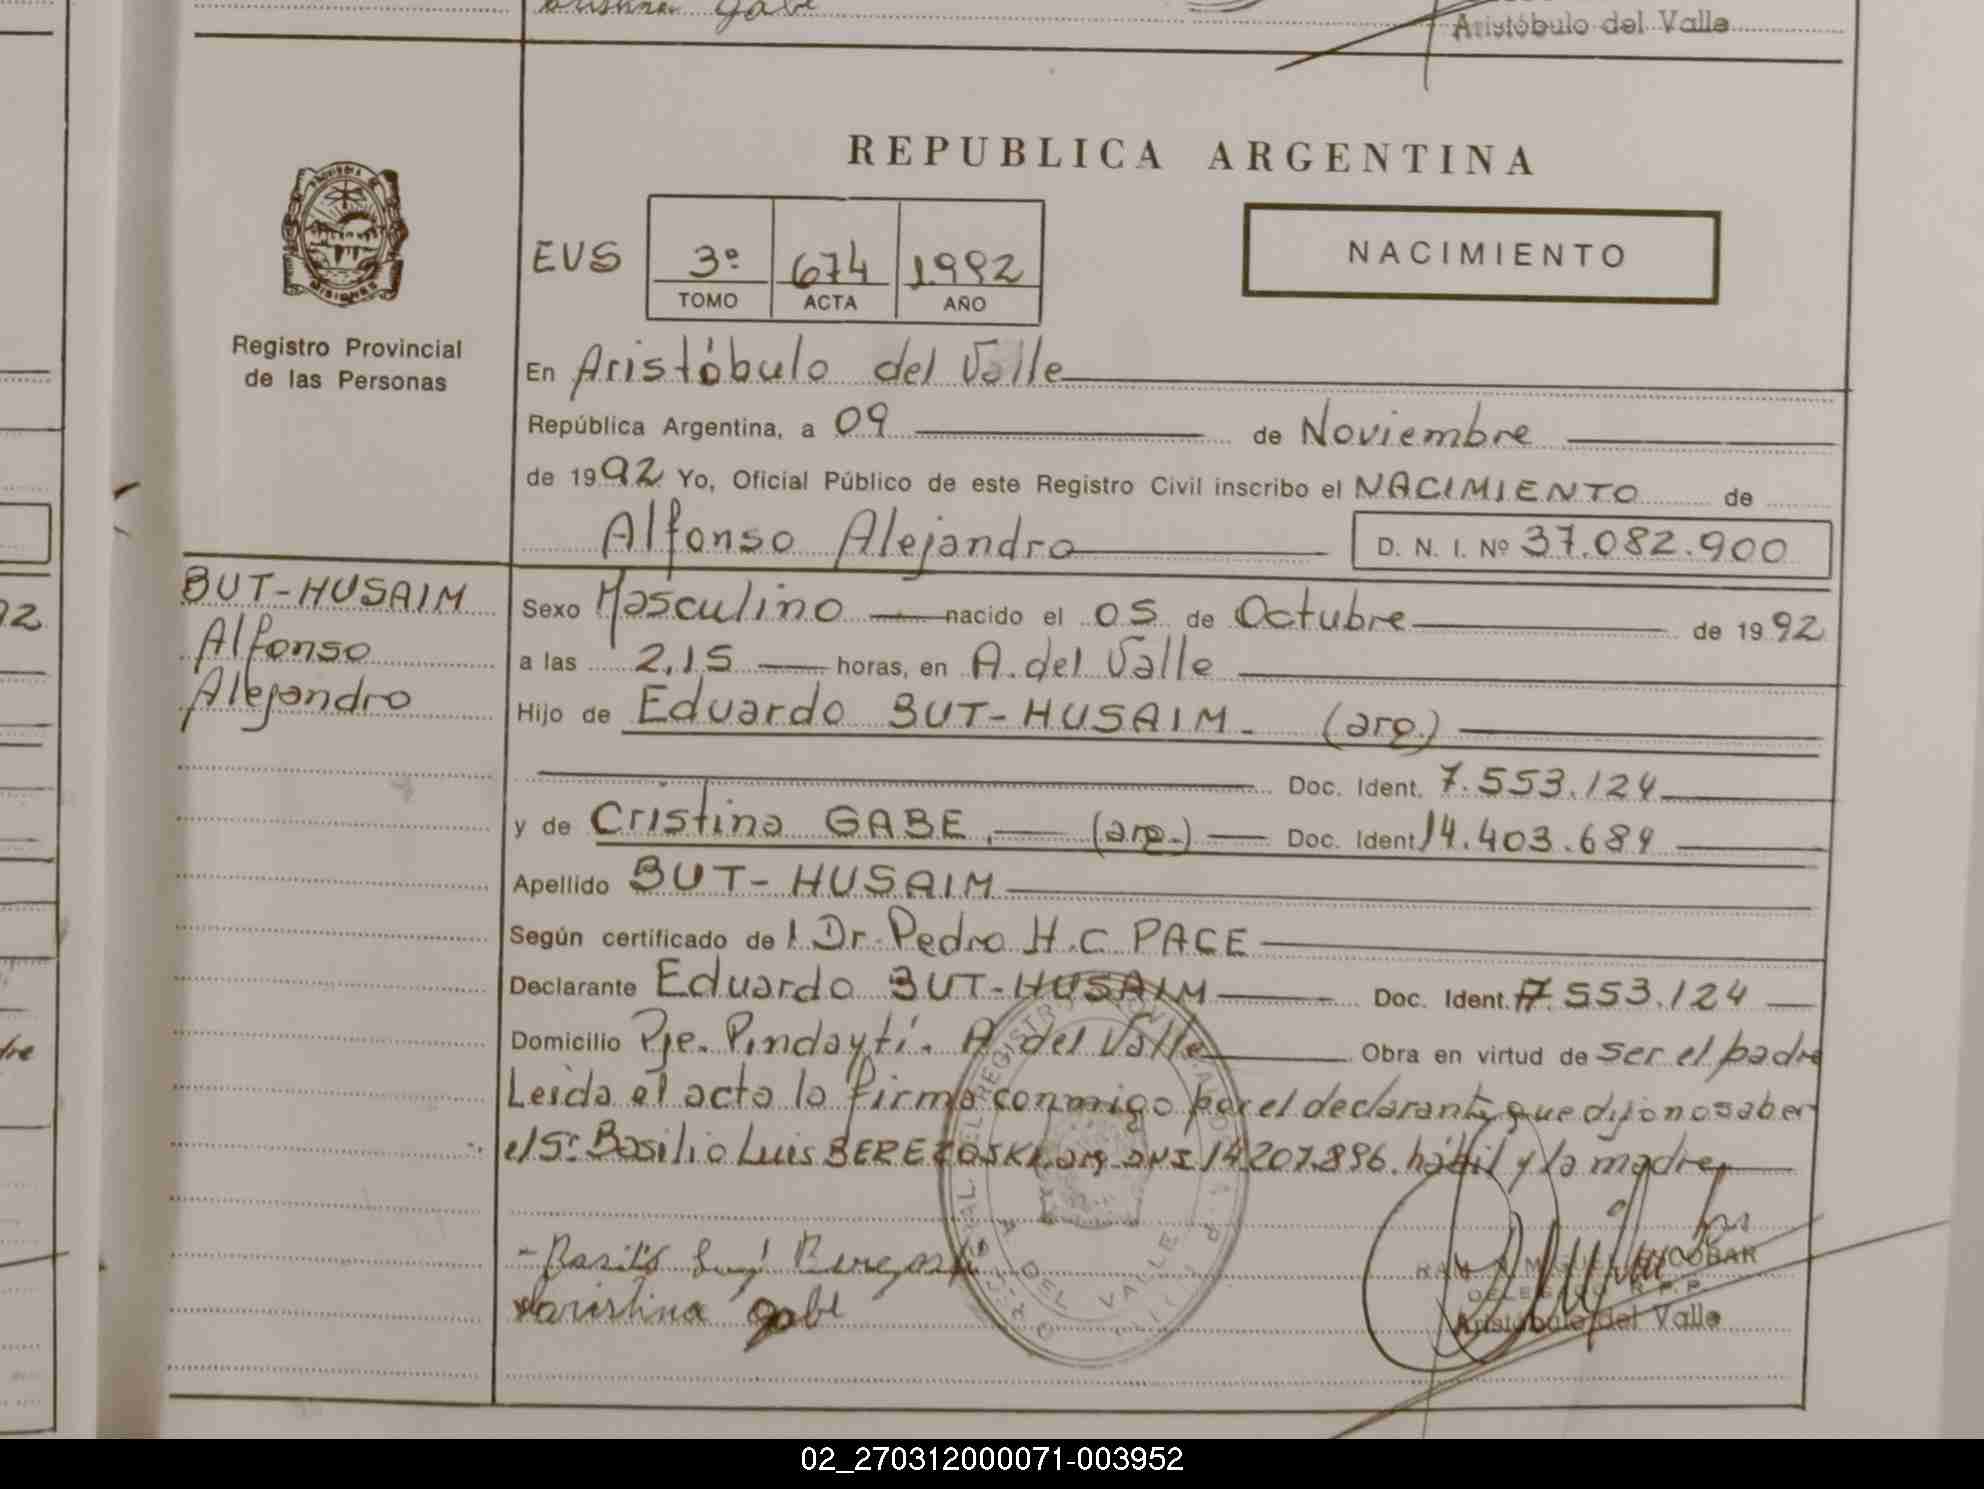 Cristina Gabe
Aristóbulo del Valle
REPUBLICA ARGENTINA
EUS
3º 674 1992
TOMO ACTA AÑO
NACIMIENTO
MISIONES
Registro Provincial
de las Personas
En Aristóbulo del Valle
República Argentina, a 09 de Noviembre
de 1992 Yo, Oficial Público de este Registro Civil inscribo el NACIMIENTO de
Alfonso Alejandro D. N. I. Nº 37.082.900
BUT-HUSAIM
Alfonso
Alejandro
Sexo Masculino nacido el 05 de Octubre de 1992
a las 2,15 horas, en A. del Valle
Hijo de Eduardo BUT-HUSAIM. (arg.)
Doc. Ident. 7.553.124
y de Cristina GABE, (arg.) Doc. Ident. 14.403.689
Apellido BUT-HUSAIM
Según certificado de l Dr. Pedro H.C. PACE
Declarante Eduardo BUT-HUSAIM Doc. Ident. 7.553.124
Domicilio Pje. Pindaytí. A del Valle Obra en virtud de ser el padre
Leida el acta la firma conmigo por el declarante que dijo no saber
el Sr. Basilio Luis BEREZOSKI, arg. DNI 14.207.896. hábil y la madre,
DEL VALLE
Cristina Gabe
RAMON MIGUEL ESCOBAR
DELEGADO R.P.P.
Aristóbulo del Valle
92
02_270312000071-003952